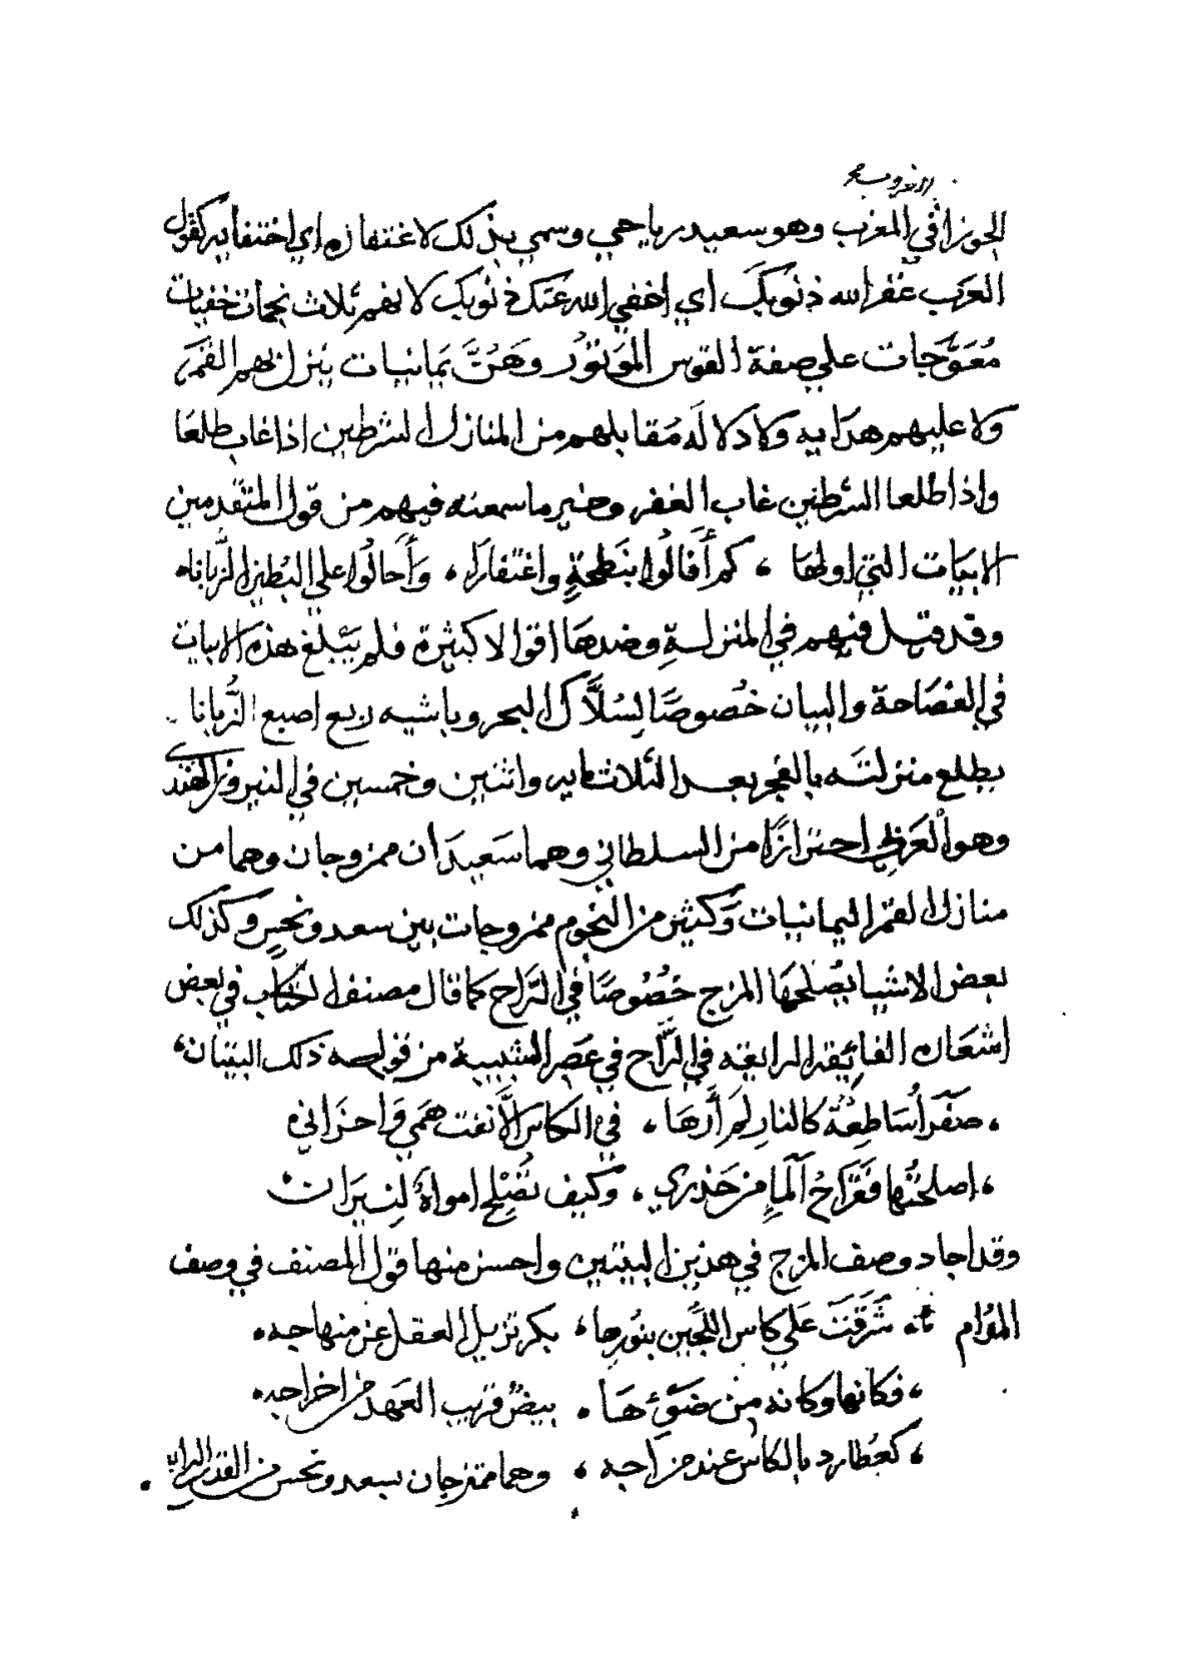 الجوزا في المغرب وهو سعيد رياحي وسمي بذلك لاغتفاره اي اختفايه كقول
العرب غفر الله ذنوبك اي اخفي الله عنك ذنوبك لانهم ثلاث نجمات خفيات
مُعَوَّجات علي صفة القوس المَوتُور وهَنَّ يمانيات ينزل بهم القمر
ولا عليهم هدايه ولا دلاله مُقابلهم من المنازل الشرطين اذا غاب طلعا
واذا طلعا الشرطين غاب الغفر وخير ما سمعته فيهم من قول المتقدمين
الابيات التي اولها ، كم أَقالُوا بنَطحةٍ واغتفارا ، وأَحالُوا علي البُطين الزُّبانا
وقد قيل فيهم في المنزلةِ وضدها اقوالا كثيرة فلم يَبلغ هذه الابيات
في الفصَاحة والبيان خصُوصًا لِسُلَّاك البحر وباشيه ربع اصبع الزُّبانا
يطلع منزلتَه بالفجر بعد الثلاثمايه واثنين وخمسين في النيروز الهندي
وهو العَربي احترازًا من السلطاني وهما سَعيدَان ممزوجان وهما من
منازل القمر اليمانيات وَكثير من النجوم ممزوجات بين سعد ونحسٍ وكذلك
بعض الاشيا يُصلحهَا المزج خُصُوصًا في الرَاح كما قال مصنف الكتاب في بعض
اشعاره الفائِقه الرايقه في الرَّاح في عَصْر الشبيبة من قوله ذلك البيتان ،
، صَفرَا سَاطِعَة كالنارِ لم أَرَهَا ، في الكاس الَّا نفت هَمي وَاحزاني
، اصلحتُها فَقَراحُ اَلمآءِ من حَذري ، وكيف تُصْلِح امواهٌ لِنيرَان
وقد اجاد وصف المزج في هذين البيتين واحسن منها قول المصنف في وصف
المُدام ، شَرَقَتَ عَلي كاس اللُّجَين بنُورها ، بكر تزيل العقل عن منهاجه ،
، فكانها وكانه من ضَوئِهَا ، بيضٌ قريب العَهد من اخراجه ،
، كعُطارد بالكاس عند مزاجه ، وهما ممتزجان بسعد ونحس من